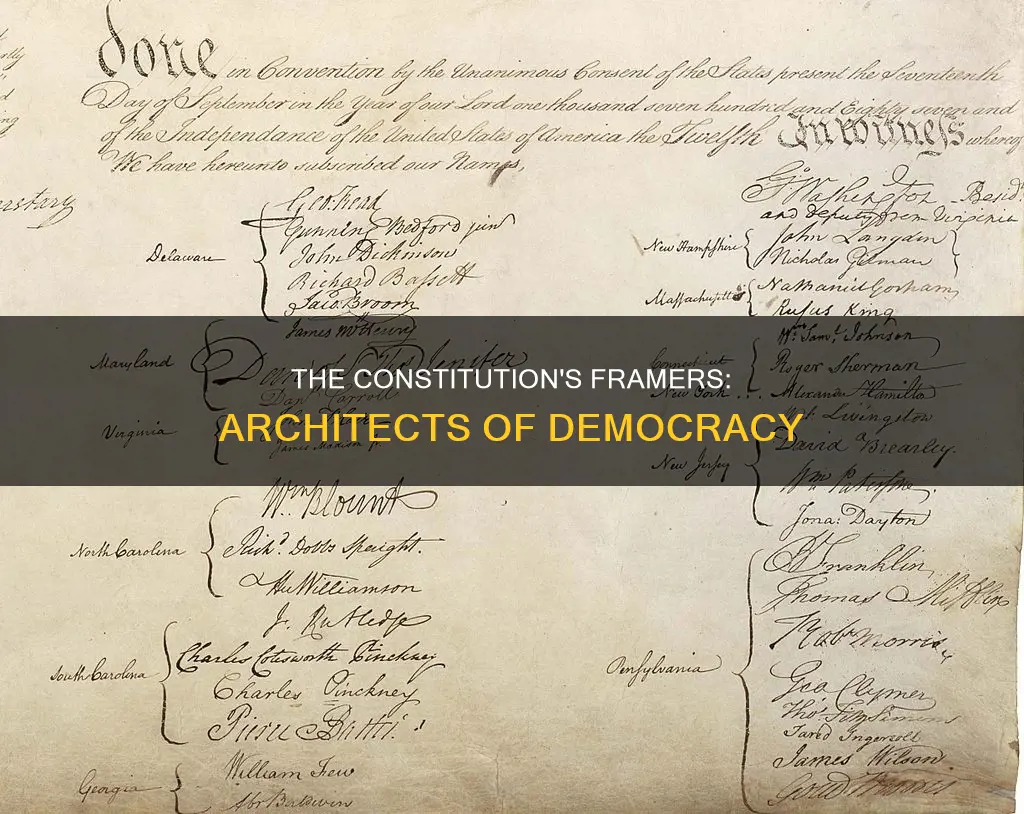 done in Convention by the Unanimous Consent of the States present the Seventeenth
Day of September in the Year of our Lord one thousand seven hundred and Eighty seven and
of the Independance of the United States of America the Twelfth In witness whereof
We have hereunto subscribed our Names,
Delaware
Geo: Read
Gunning Bedford jun
John Dickinson
Richard Bassett
Jaco: Broom
Maryland
James McHenry
Dan of St Thos Jenifer
Danl Carroll
Virginia
James Madison Jr
North Carolina
Wm Blount
Richd. Dobbs Spaight.
Hu Williamson
South Carolina
J. Rutledge
Charles Cotesworth Pinckney
Charles Pinckney
Pierce Butler.
Georgia
William Few
Abr Baldwin
Go. Washington Presidt.
and deputy from Virginia
New Hampshire
John Langdon
Nicholas Gilman
Massachusetts
Nathaniel Gorham
Rufus King
Connecticut
Wm. Saml. Johnson
Roger Sherman
New York ... Alexander Hamilton
New Jersey
Wil. Livingston
David Brearley.
Wm Paterson.
Jona: Dayton
Pensylvania
B Franklin
Thomas Mifflin
Robt Morris
Geo. Clymer
Thos. FitzSimons
Jared Ingersoll
James Wilson
Gouv Morris
THE CONSTITUTION'S FRAMERS:
ARCHITECTS OF DEMOCRACY